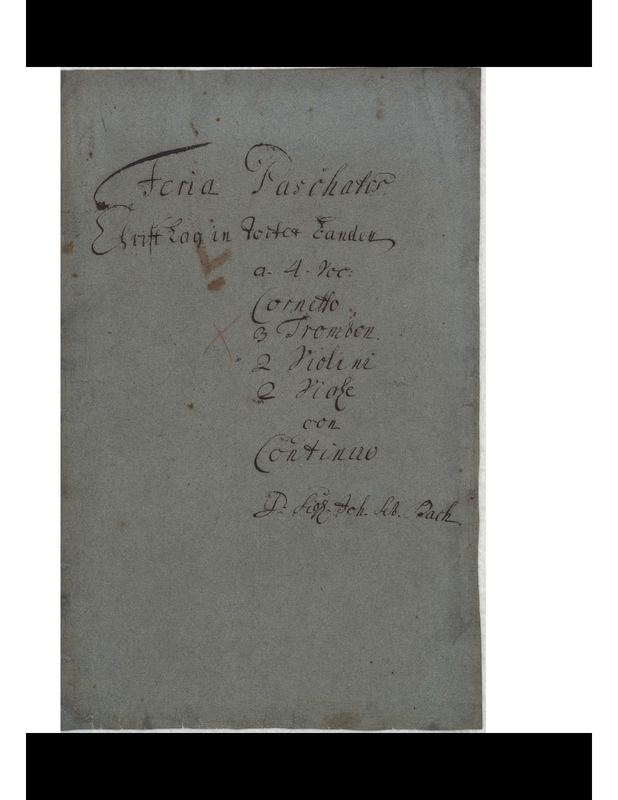 Feria Paschatos
Christ Lag in Todter Banden
a. 4. Voc:
Cornetto.
3 Trombon.
2 Violini
2 Viole
con
Continuo
D. Sigr. Joh. Seb. Bach.